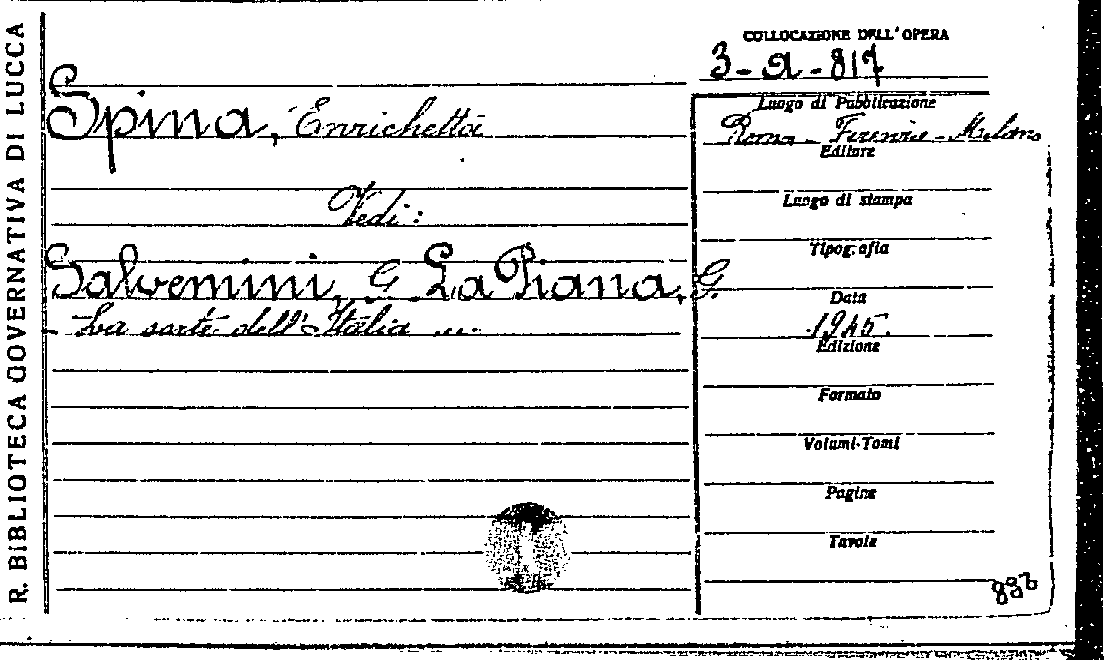 R. BIBLIOTECA GOVERNATIVA DI LUCCA
Spina, Enrichetta
Vedi:
Salvemini, G. La Piana, G.
La sorte dell'Italia ...
COLLOCAZIONE DELL'OPERA
3-a-817
Luogo di Pubblicazione
Roma - Firenze - Milano
Editore
Luogo di stampa
Tipografia
Data
1945.
Edizione
Formato
Volumi-Tomi
Pagine
Tavole